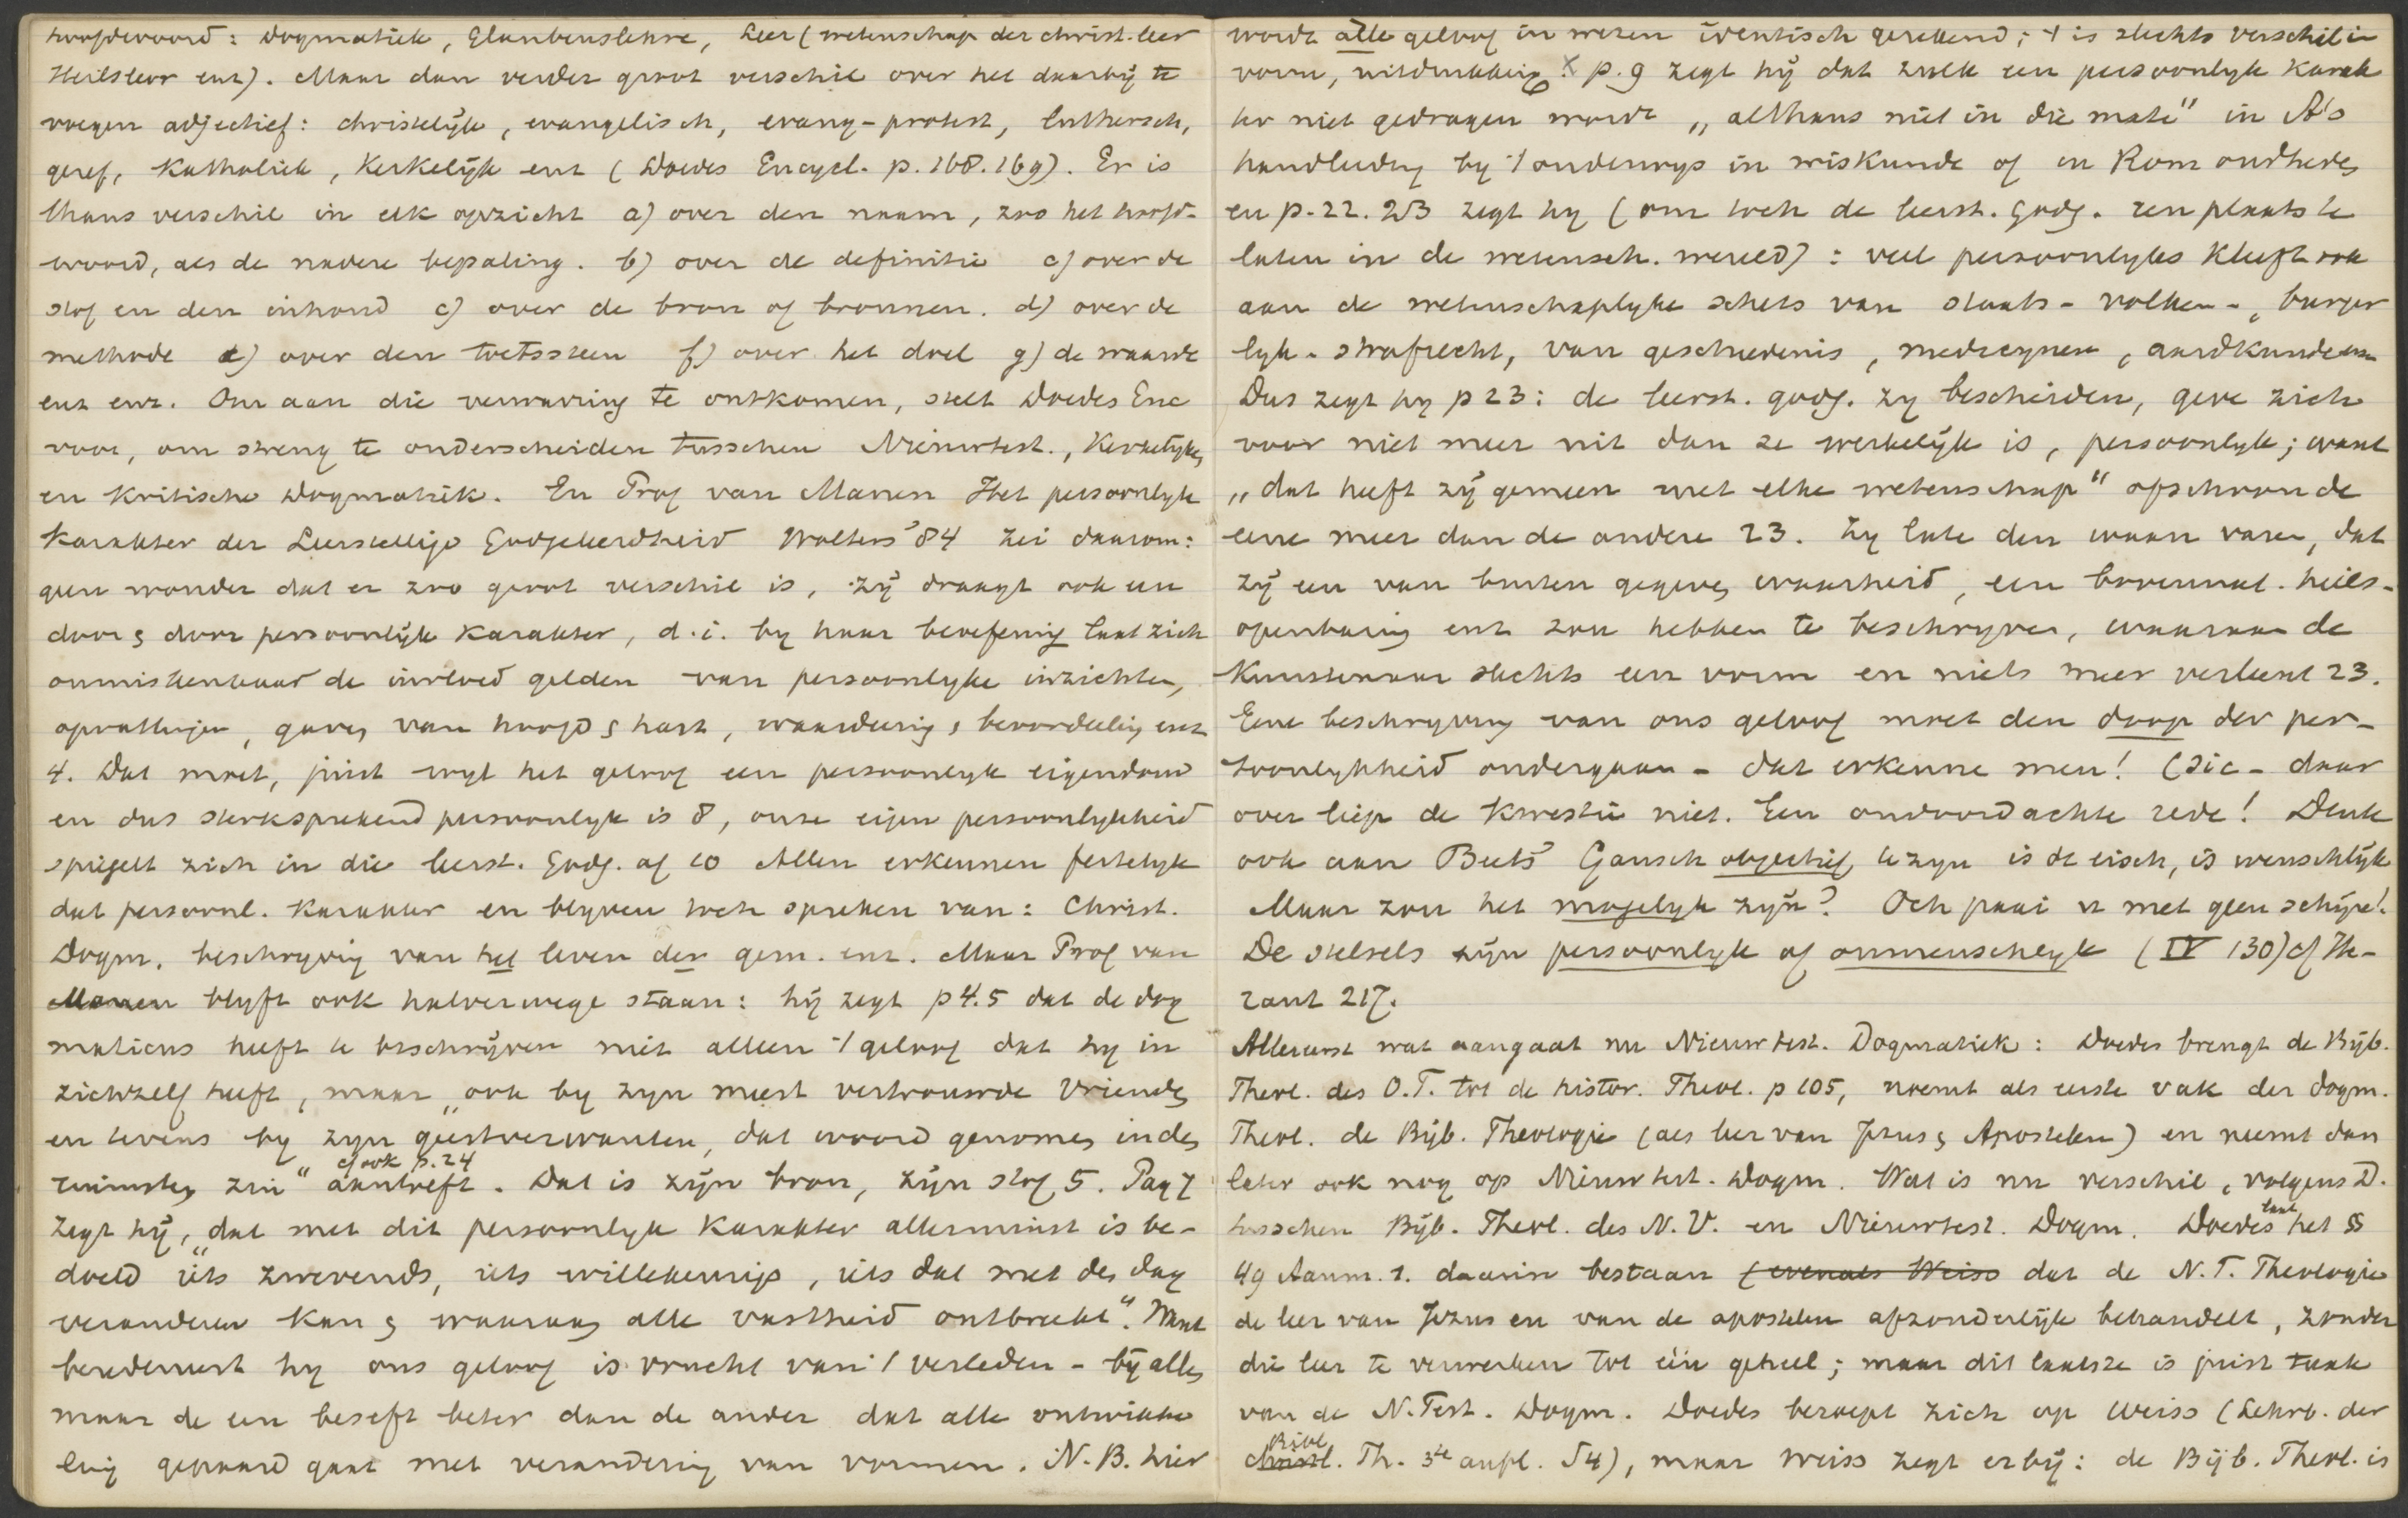 hoofdwoord: Dogmatiek, Glaubenslehre, Leer (wetenschap der christ. leer
Heilsleer enz). Maar dan verder groot verschil over het daarbij te
voegen adjectief: christelijk, evangelisch, evang-protest, luthersch,
geref, Katholiek, Kerkelijk enz (Doedes Encycl. p. 168.169). Er is
thans verschil in elk opzicht a) over den naam, zoo het hoofd-
woord, als de nadere bepaling. b) over de definitie c) over de
stof en den inhoud c) over de bron of bronnen. d) over de
methode e) over den toetssteen f) over het doel g) de waarde
enz enz. Om aan die verwarring te ontkomen, stelt Doedes Enc
voor, om streng te onderscheiden tusschen Nieuwtest., Kerkelijke,
en Kritische Dogmatiek. En Prof van Manen Het persoonlyk
Karakter der Leerstellige Godgeleerdheid Wolters '84 zei daarom:
geen wonder dat er zoo groot verschil is, zij draagt ook een
door & door persoonlijk Karakter, d.i. by haar beoefening laat zich
onmiskenbaar de invloed gelden van persoonlyke inzichten,
opvattingen, gaven van hoofd & hart, waardering, bevoordeeling enz
4. Dat moet, juist wyl het geloof een persoonlyk eigendom
en dus sterksprekend persoonlyk is 8, onze eigen persoonlykheid
spiegelt zich in die leerst. Godg. af 10 Allen erkennen feitelyk
dat persoonl. Karakter en blyven toch spreken van: Christ.
Dogm. beschryving van het leven der gem. enz. Maar Prof van
Manen blyft ook halverwege staan: hij zegt p 4.5 dat de dog
maticus heeft te beschrijven niet alleen 't geloof dat hy in
zichzelf heeft, maar „ook by zyn meest vertrouwde vrienden
en tevens by zyn geestverwanten, dat woord genomen in den
cf ook p. 24
ruimsten zin" aantreft. Dat is zijn bron, zijn stof 5. Pag 7
zegt hij, „dat met dit persoonlyk Karakter allerminst is be-
doeld iets zwevends, iets willekeurigs, iets dat met den dag
veranderen kan & waaraan alle vastheid ontbreekt". Want
beredeneert hy ons geloof is vrucht van 't verleden - bij allen
maar de een beseft beter dan de ander dat alle ontwikke
ling gepaard gaat met verandering van vormen. N.B. hier
wordt alle geloof in wezen identisch gerekend; 't is slechts verschil in
vorm, uitdrukking! X p. 9 zegt hij dat zulk een persoonlyk Karak
ter niet gedragen wordt „althans niet in die mate" in A's
handleiding by 't onderwys in wiskunde of in Rom oudheden
en p. 22. 23 zegt hy (om toch de leerst. godg. een plaats te
laten in de wetensch. wereld): veel persoonlyks kleeft ook
aan de wetenschaplyke schets van staats- volken-, burger
lyk- strafrecht, van geschiedenis, medicynen, aardkunde enz
Dus zegt hy p 23: de leerst. godg. zy bescheiden, geve zich
voor niet meer uit dan ze werkelijk is, persoonlyk; want
„dat heeft zij gemeen met elke wetenschap" ofschoon de
eene meer dan de andere 23. Zy late den waan varen, dat
zij een van buiten gegeven waarheid, een bovennat. heils-
openbaring enz zou hebben te beschryven, waaraan de
Kunstenaar slechts een vorm en niets meer verleent 23.
Eene beschryving van ons geloof moet den doop der per-
soonlykheid ondergaan - dat erkenne men! (sic - daar
over liep de Kwestie niet. Een ondoordachte rede! Denk
ook aan Beets' Gansch objectief te zyn is de eisch, is wenschlijk
Maar zou het mogelyk zijn? Och paai u met geen schijn!
De stelsels zijn persoonlyk of onmenschlyk (IV 130) cf The-
rant 217.
Allereerst wat aangaat nu Nieuwtest. Dogmatiek: Doedes brengt de Bijb.
Theol. des O.T. tot de histor. Theol. p 105, noemt als eerste vak der dogm.
Theol. de Bijb. Theologie (als leer van Jezus & Apostelen) en neemt dan
later ook nog op Nieuwtest. Dogm. Wat is nu verschil, volgens D.
tusschen Bijb. Theol. des N.V. en Nieuwtest. Dogm. Doedes laat het §
49 Aanm. 1. daarin bestaan (evenals Weiss dat de N.T. Theologie
de leer van Jezus en van de apostelen afzonderlijk behandelt, zonder
die leer te verwerken tot één geheel; maar dit laatste is juist taak
van de N. Test. Dogm. Doedes beroept zich op Weiss (Lehrb. der
Bibl
christl. Th. 3te aufl. §4), maar Weiss zegt erbij: de Bijb. Theol. is